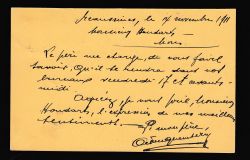 Ecaussines, le 7 novembre 1911
Monsieur Houdart
Mons
Le père me charge, de vous faire
savoir, qu'il se rendra dans vos
bureaux vendredi 17 et avant-
midi
Agréez, je vous prie, Monsieur
Houdart, l'expression de nos meilleurs
sentiments.
Pr mon père,